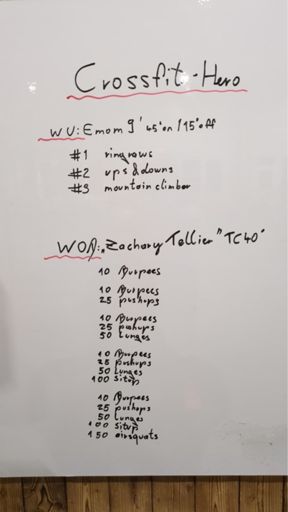 Crossfit-Hero
WU: Emom 9' 45"on/15"off
#1 ringrows
#2 ups & downs
#3 mountain climber
WOD: "Zachary Tellier" "TC40"
10 Burpees
10 Burpees
25 pushups
10 Burpees
25 pushups
50 Lunges
10 Burpees
25 pushups
50 Lunges
100 Situp
10 Burpees
25 pushups
50 Lunges
100 Situp
150 airsquats